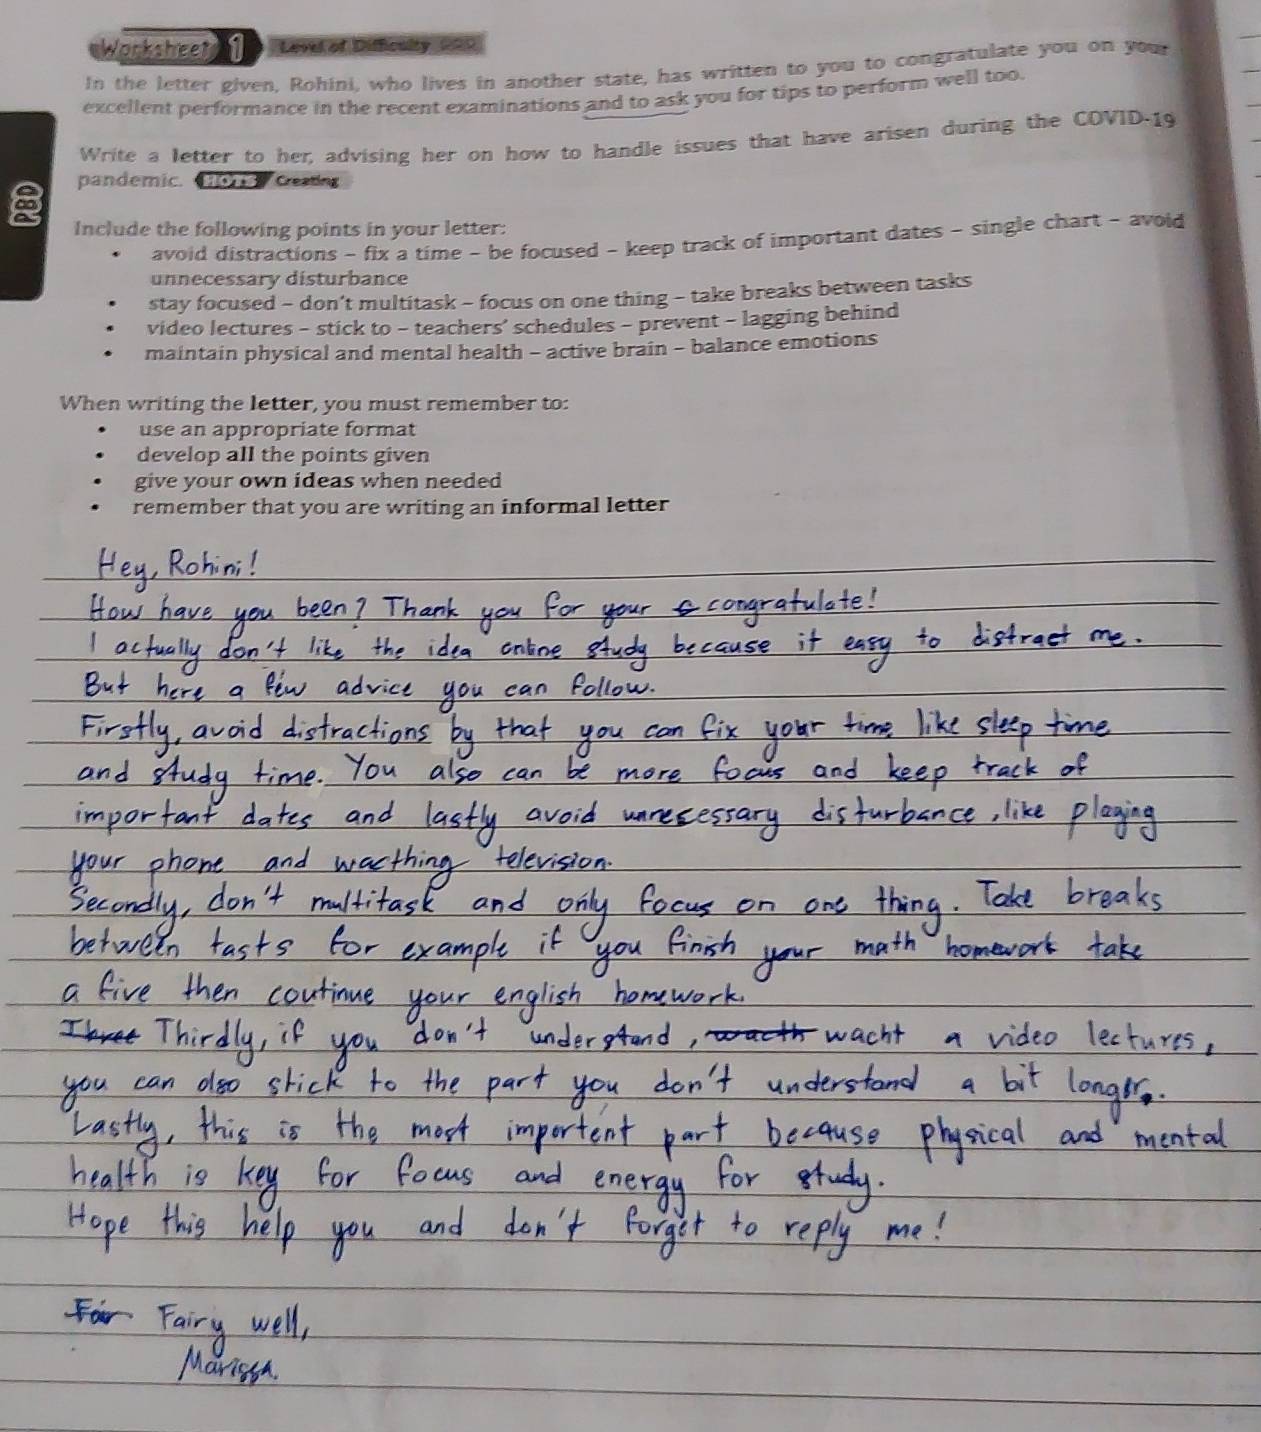 Worksheet 1 Level of Difficulty
In the letter given, Rohini, who lives in another state, has written to you to congratulate you on your
excellent performance in the recent examinations and to ask you for tips to perform well too.
Write a letter to her, advising her on how to handle issues that have arisen during the COVID-19
pandemic. HOTS Creating
PBD
Include the following points in your letter:
• avoid distractions – fix a time – be focused – keep track of important dates – single chart – avoid
unnecessary disturbance
• stay focused – don't multitask – focus on one thing – take breaks between tasks
• video lectures – stick to – teachers' schedules – prevent – lagging behind
• maintain physical and mental health – active brain – balance emotions
When writing the letter, you must remember to:
• use an appropriate format
• develop all the points given
• give your own ideas when needed
• remember that you are writing an informal letter
Hey, Rohini!
How have you been? Thank you for your congratulate!
I actually don't like the idea online study because it easy to distract me.
But here a few advice you can follow.
Firstly, avoid distractions by that you can fix your time like sleep time
and study time. You also can be more focus and keep track of
important dates and lastly avoid unresessary disturbance, like playing
your phone and wacthing television.
Secondly, don't multitask and only focus on one thing. Take breaks
between tasts for example if you finish your math homework take
a five then coutinue your english homework.
Thirdly, if you don't understand, wacth wacht a video lectures,
you can also stick to the part you don't understand a bit longer.
Lastly, this is the most importent part because physical and mental
health is key for focus and energy for study.
Hope this help you and don't forget to reply me!
Fair Fairy well,
Marissa.